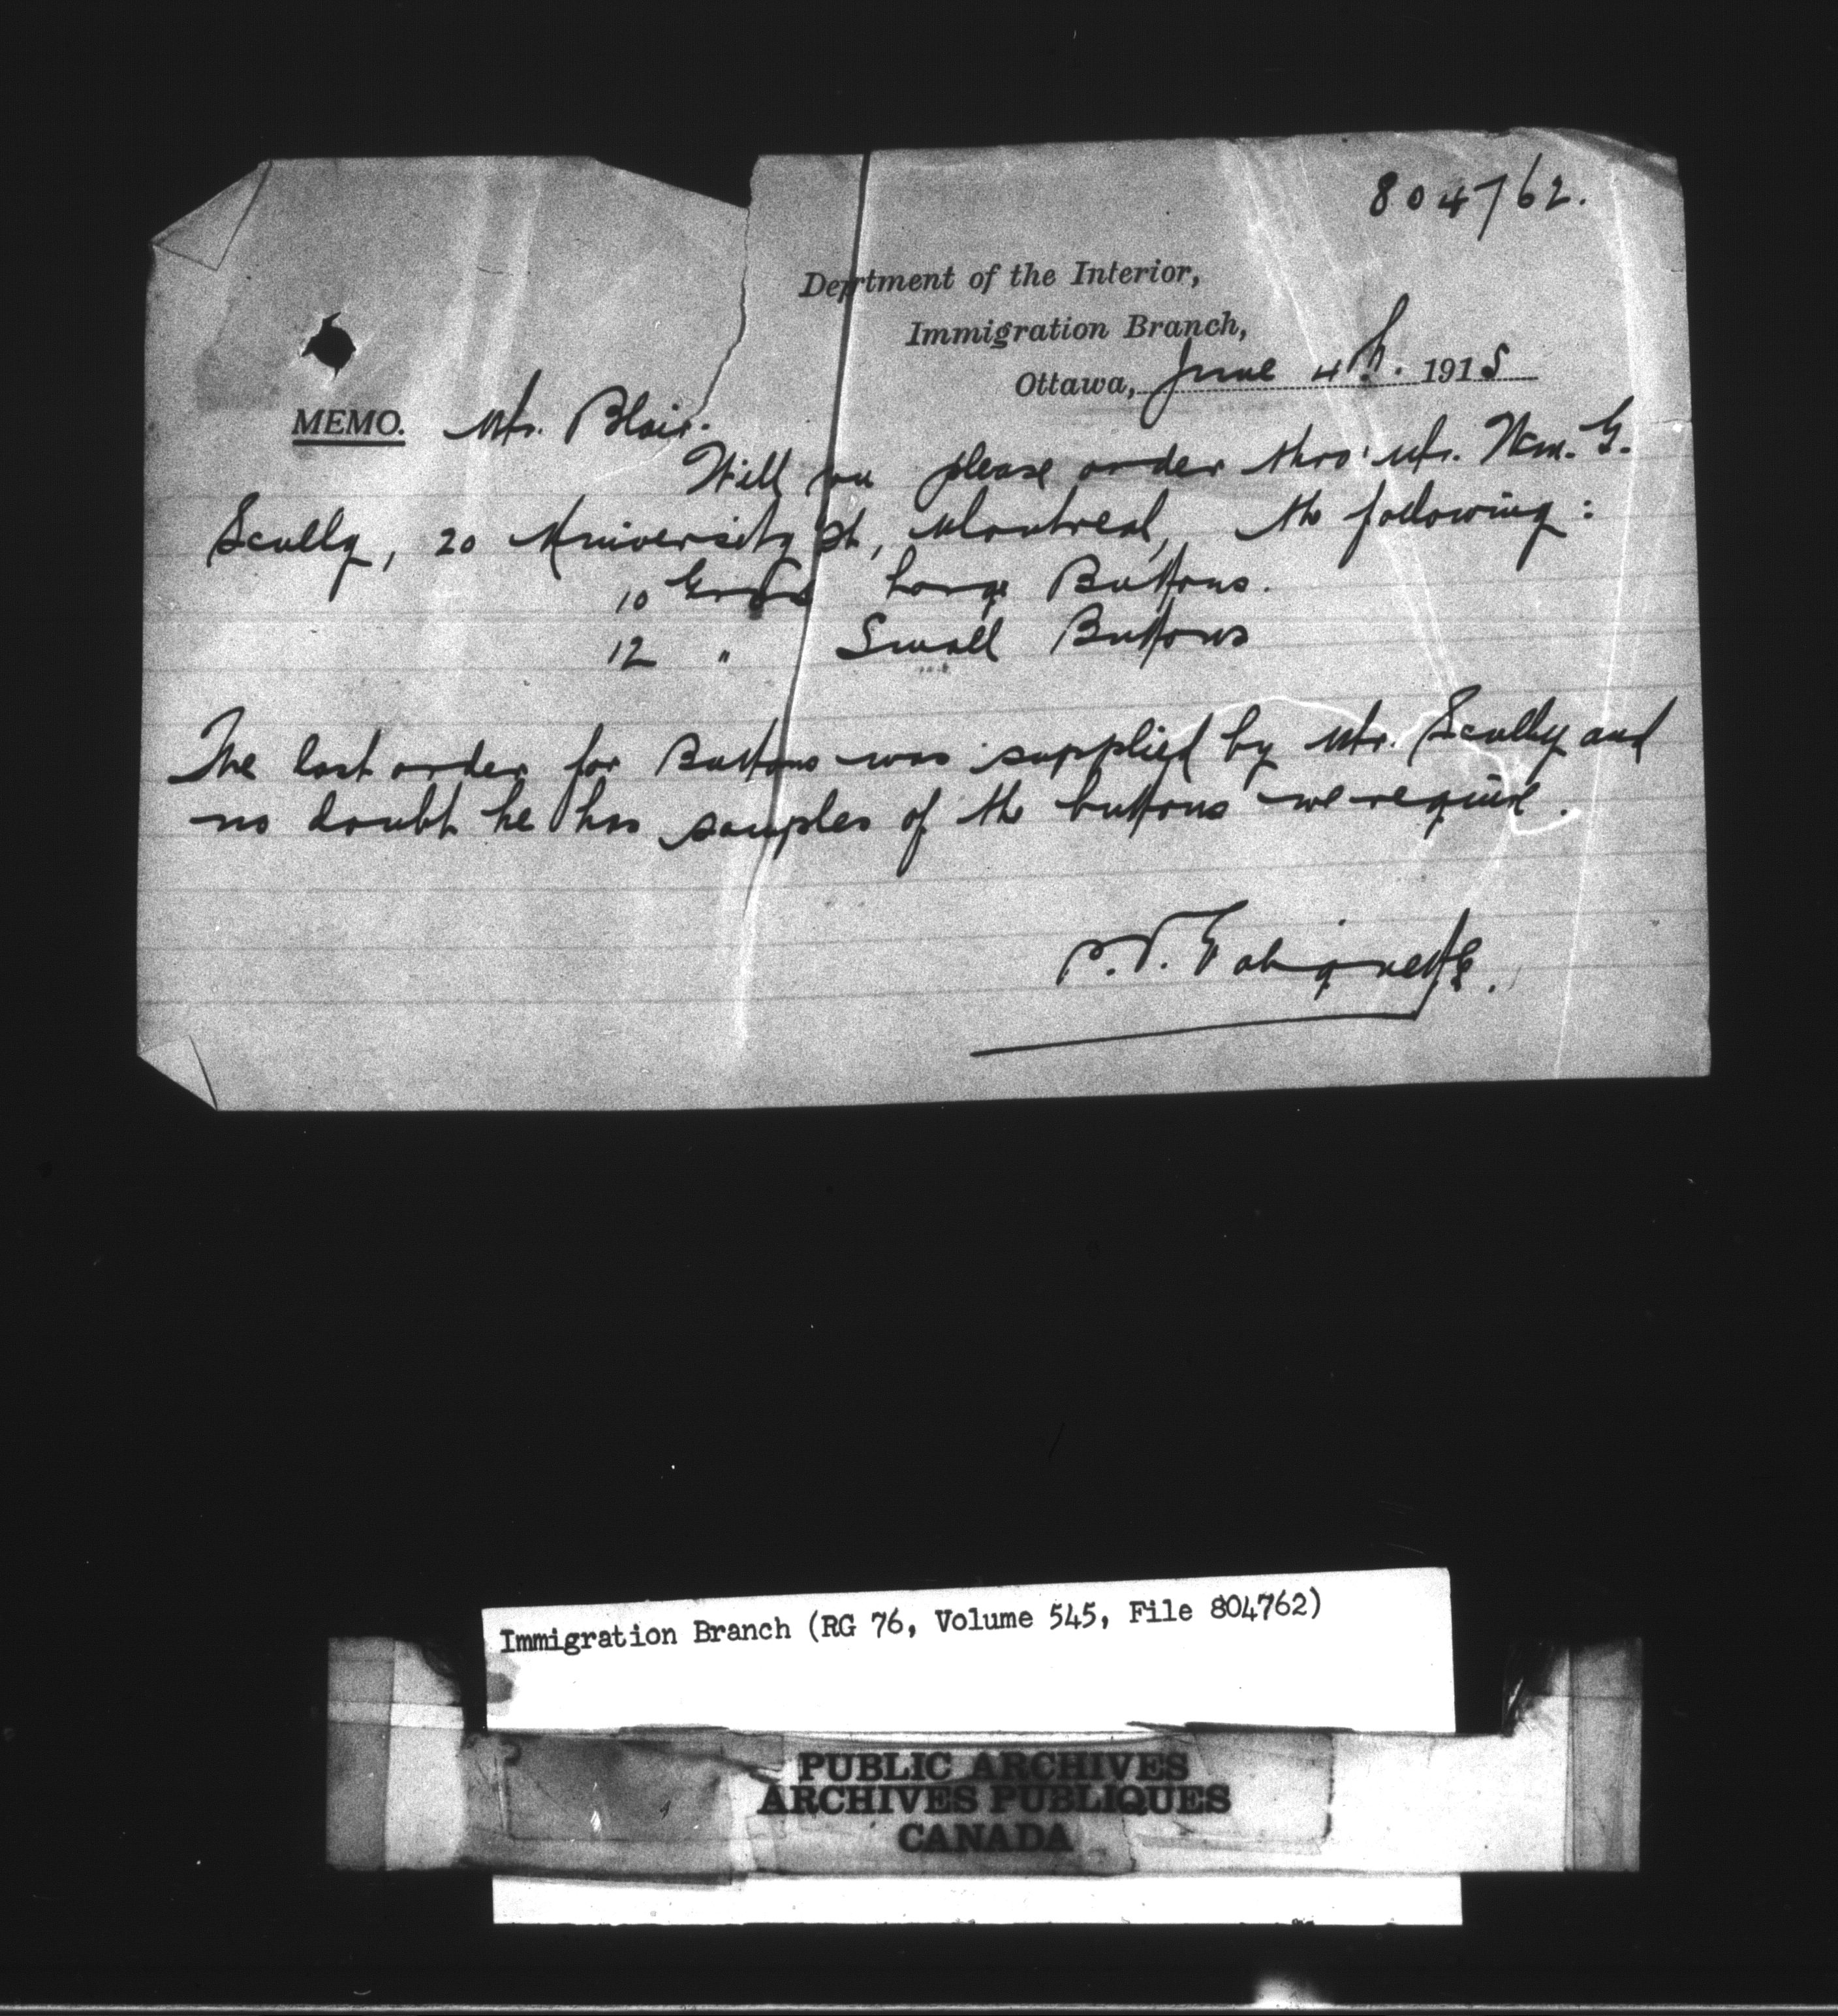 804762.
Deprtment of the Interior,
Immigration Branch,
Ottawa, June 4th. 1915
MEMO. Mr. Blair.
Will you please order thro' Mr. Wm. G.
Scully, 20 University St, Montreal, the following:
10 Gross Large Buttons.
12 " Small Buttons
The last order for Buttons was supplied by Mr. Scully and
no doubt he has samples of the buttons we require.
Immigration Branch (RG 76, Volume 545, File 804762)
PUBLIC ARCHIVES
ARCHIVES PUBLIQUES
CANADA